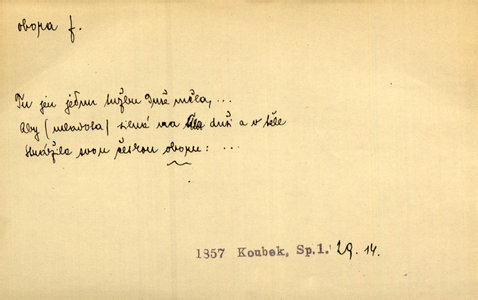 obora f.
Tu jen jednu tužbu Duše měla, ...
Aby (mravota) věrná na duši a v těle
Strážila svou českou oboru: ...
1857 Koubek, Sp.1. 29. 14.